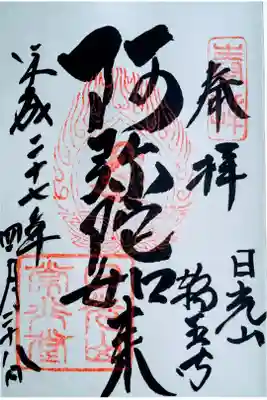 奉拝
日光山
輪王寺
阿弥陀如来
平成二十七年
四月二十八日
常行堂